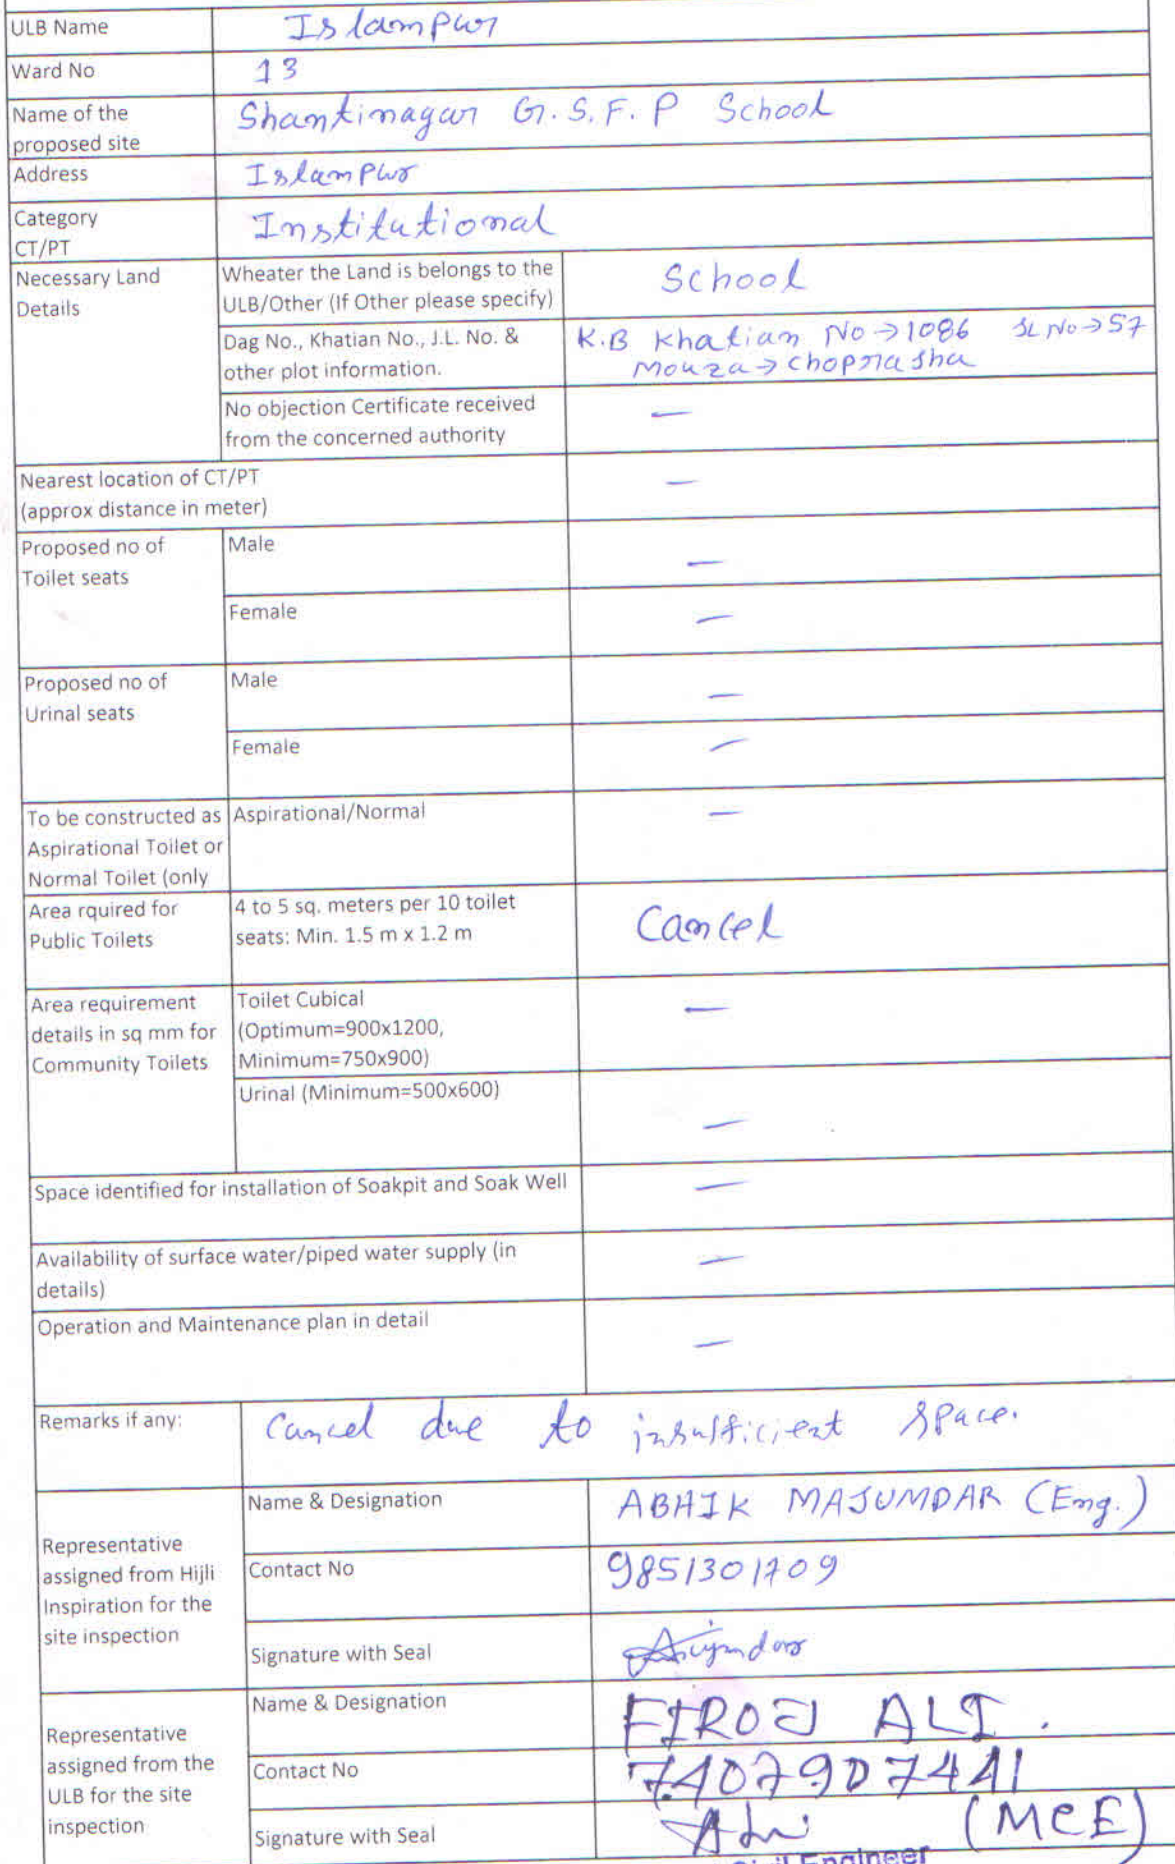 ULB Name Islampur
Ward No 13
Name of the proposed site Shantinagar G.S.F.P School
Address Islampur
Category
CT/PT Institutional
Necessary Land Details
Wheater the Land is belongs to the
ULB/Other (If Other please specify) School
Dag No., Khatian No., J.L. No. &
other plot information. K.B Khatian No→1086 SL No→57
Mouza→Chopra Jha
No objection Certificate received
from the concerned authority —
Nearest location of CT/PT
(approx distance in meter) —
Proposed no of
Toilet seats
Male —
Female —
Proposed no of
Urinal seats
Male —
Female —
To be constructed as
Aspirational Toilet or
Normal Toilet (only
Aspirational/Normal —
Area rquired for
Public Toilets
4 to 5 sq. meters per 10 toilet
seats: Min. 1.5 m x 1.2 m Cancel
Area requirement
details in sq mm for
Community Toilets
Toilet Cubical
(Optimum=900x1200,
Minimum=750x900) —
Urinal (Minimum=500x600) —
Space identified for installation of Soakpit and Soak Well —
Availability of surface water/piped water supply (in
details) —
Operation and Maintenance plan in detail —
Remarks if any: Cancel due to insufficient space.
Representative
assigned from Hijli
Inspiration for the
site inspection
Name & Designation ABHIK MAJUMDAR (Eng.)
Contact No 9851301709
Signature with Seal
Representative
assigned from the
ULB for the site
inspection
Name & Designation FIROJ ALI.
Contact No 7407907441
Signature with Seal Ali (MCE)
Civil Engineer